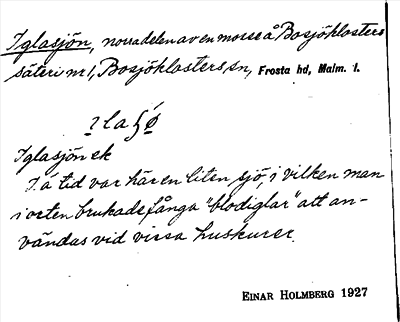 Iglasjön, norra delen av en mosse å Bosjöklosters
säteri nr 1, Bosjöklosters sn, Frosta hd, Malm. l.
Iglasjön ek
I ä. tid var här en liten sjö, i vilken man
i orten brukade fånga "blodiglar" att an-
vändas vid vissa huskurer.
EINAR HOLMBERG 1927